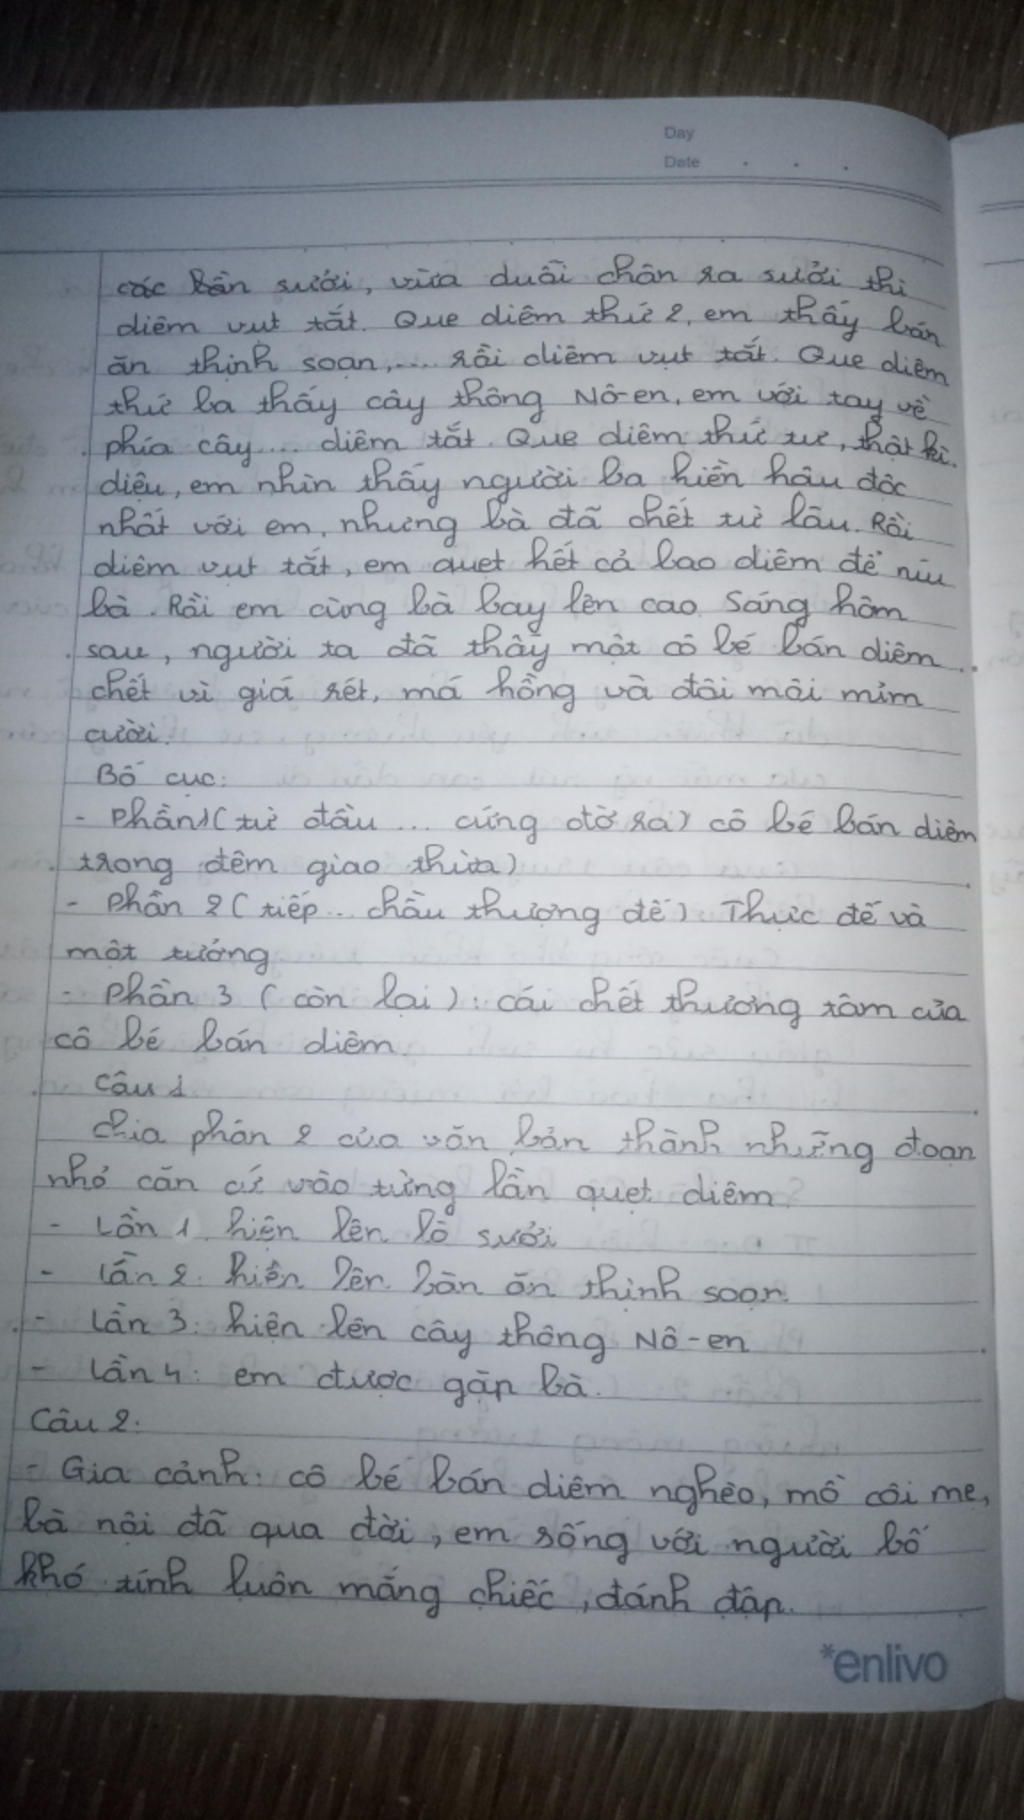 Day
Date
các bần sưới, vừa duỗi chân ra sưởi thì
diêm vụt tắt. Que diêm thứ 2, em thấy bán
ăn thịnh soạn,.... rồi diêm vụt tắt. Que diêm
thứ ba thấy cây thông Nô-en, em với tay về
phía cây.... diêm tắt. Que diêm thứ tư, thật kì
diệu, em nhìn thấy người ba hiền hâu độc
nhất với em, nhưng bà đã chết từ lâu. Rồi
diêm vụt tắt, em quẹt hết cả bao diêm để níu
bà. Rồi em cùng bà bay lên cao. Sáng hôm
sau, người ta đã thấy một cô bé bán diêm
chết vì giá rét, má hồng và đôi môi mỉm
cười.
Bố cục:
- Phần 1 (từ đầu ... cứng đờ ra) cô bé bán diêm
trong đêm giao thừa)
- Phần 2 ( tiếp... chầu thượng đế) Thực đế và
một tưởng
- Phần 3 ( còn lại ): cái chết thương tâm của
cô bé bán diêm.
Câu 1
Chia phần 2 của văn bản thành những đoạn
nhỏ căn cứ vào từng lần quẹt diêm
- Lần 1. hiện lên lò sưởi
- Lần 2: hiện lên bàn ăn thịnh soạn.
- Lần 3: hiện lên cây thông Nô-en
- Lần 4: em được gặp bà.
Câu 2:
- Gia cảnh: cô bé bán diêm nghèo, mồ côi mẹ,
bà nội đã qua đời, em sống với người bố
khó tính luôn mắng chiếc, đánh đập.
*enlivo